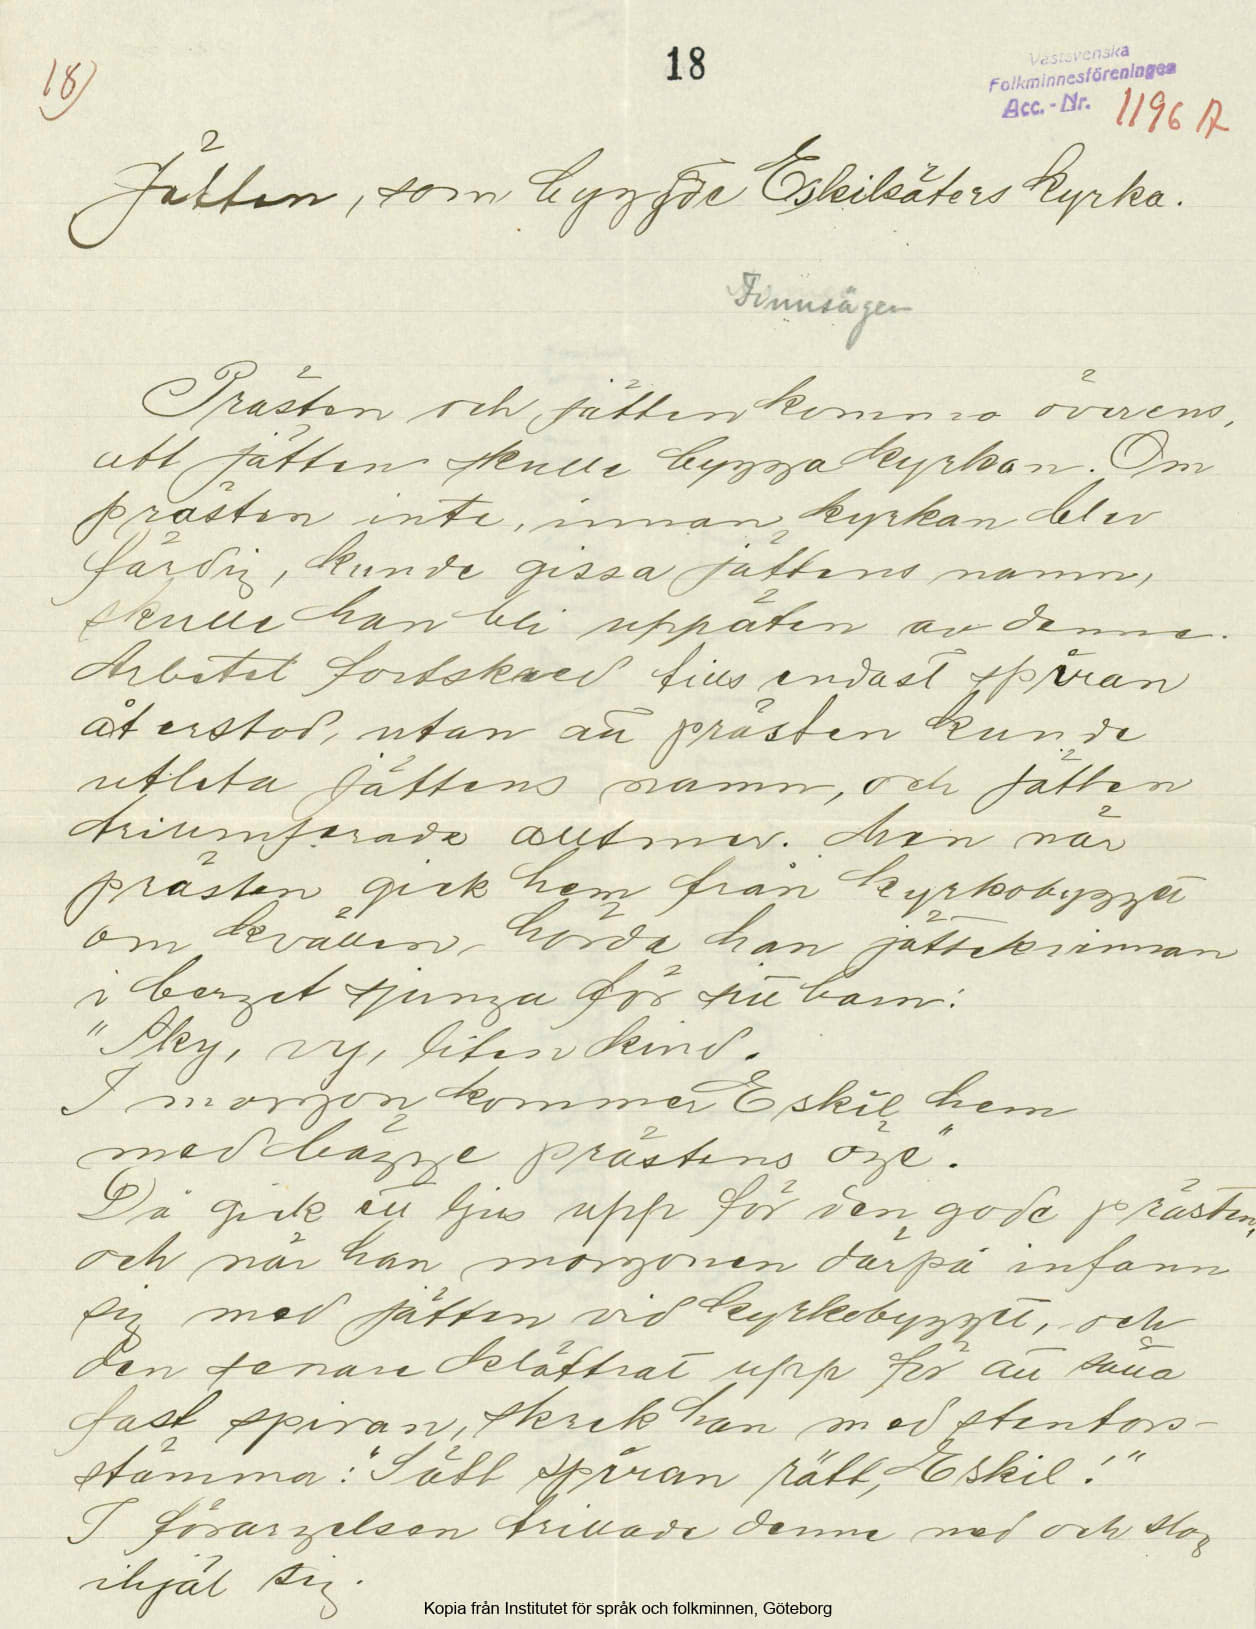 18)
18
Västsvenska
Folkminnesföreningen
Acc.-Nr. 1196 A
Jätten, som byggde Eskilsäters kyrka.
Finnsägen
Prästen och jätten kommo överens,
att jätten skulle bygga kyrkan. Om
prästen inte, innan kyrkan blev
färdig, kunde gissa jättens namn,
skulle han bli uppäten av denne.
Arbetet fortskred tills endast spiran
återstod, utan att prästen kunde
utleta jättens namn, och jätten
triumferade alltmer. Men när
prästen gick hem från kyrkobygget
om kvällen, hörde han jättekvinnan
i berget sjunga för sitt barn:
"Sky, vy, liten kind.
I morgon kommer Eskil hem
med bägge prästens öge".
Då gick ett ljus upp för den gode prästen,
och när han morgonen därpå infann
sig med jätten vid kyrkebygget, och
den senare klättrat upp för att sätta
fast spiran, skrek han med stentors-
stämma: "Sätt spiran rätt, Eskil!"
I förargelsen trillade denne ned och slog
ihjäl sig.
Kopia från Institutet för språk och folkminnen, Göteborg